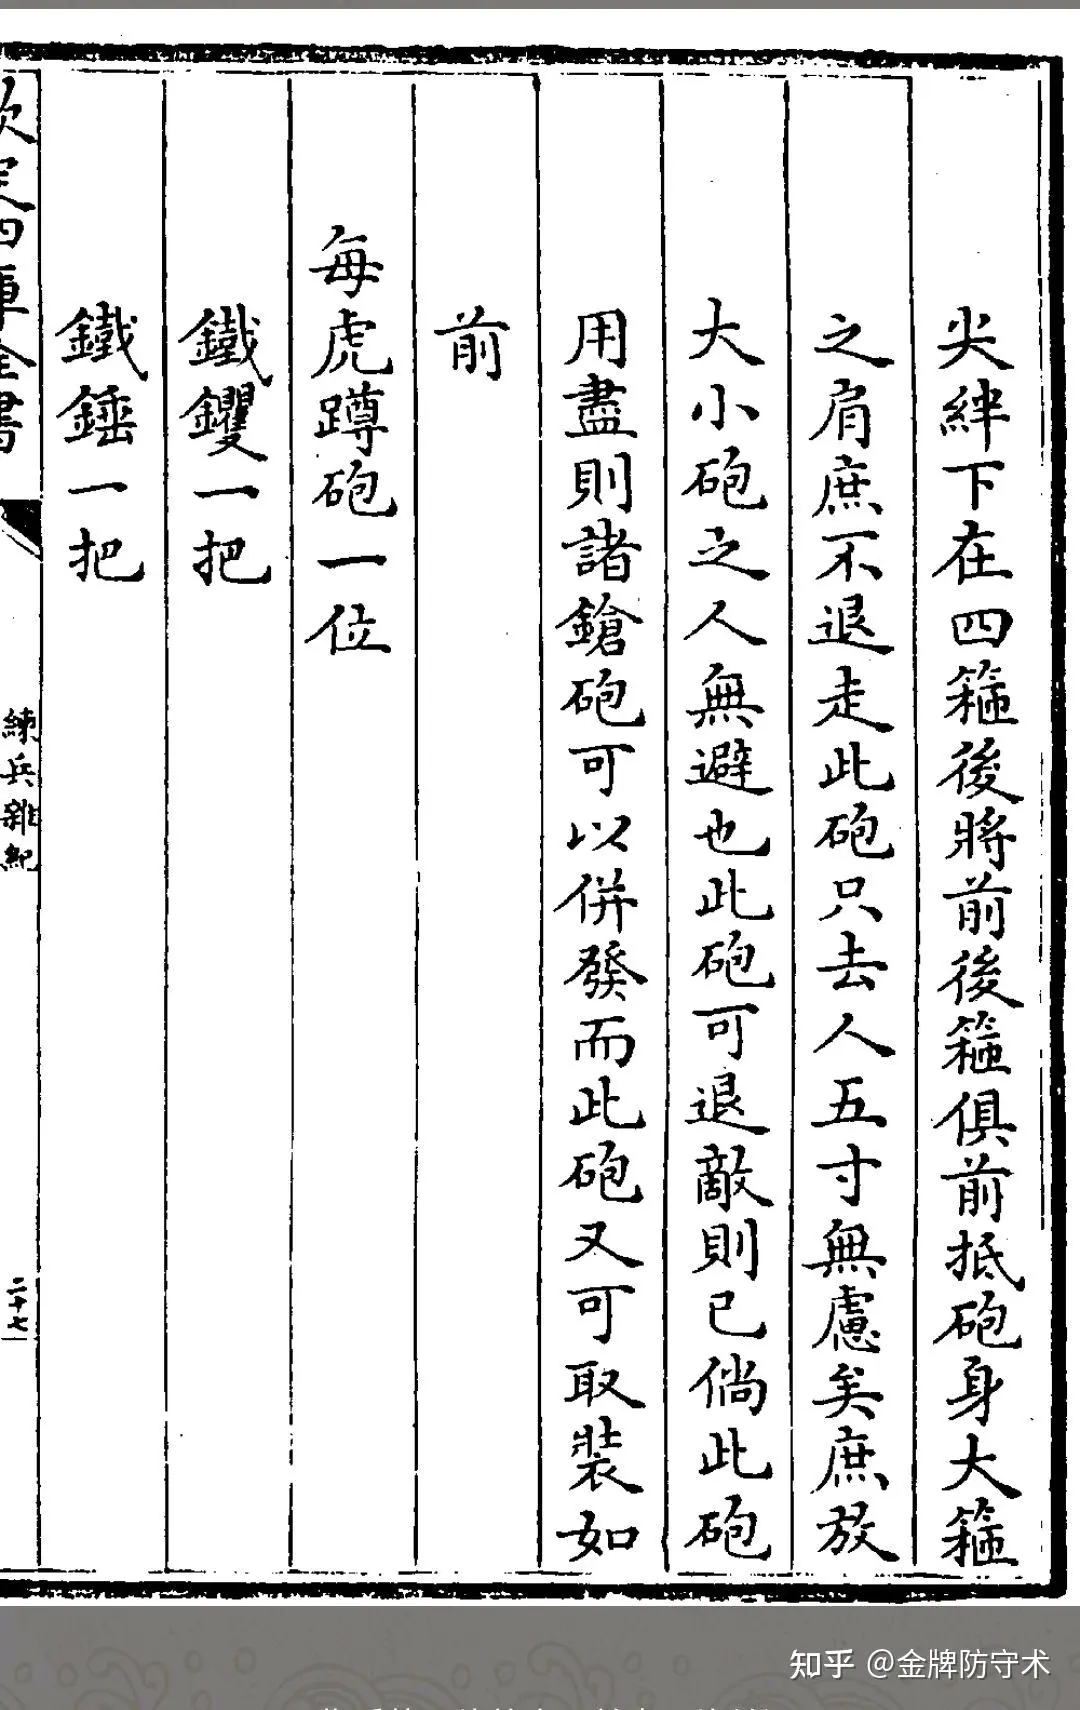 尖絆下在四箍後將前後箍俱前抵砲身大箍
之肩庶不退走此砲只去人五寸無慮矣庶放
大小砲之人無避也此砲可退敵則已倘此砲
用盡則諸鎗砲可以併發而此砲又可取裝如
前
每虎蹲砲一位
鐵钁一把
鐵錘一把
欽定四庫全書
練兵雜紀
二十七
知乎 @金牌防守术